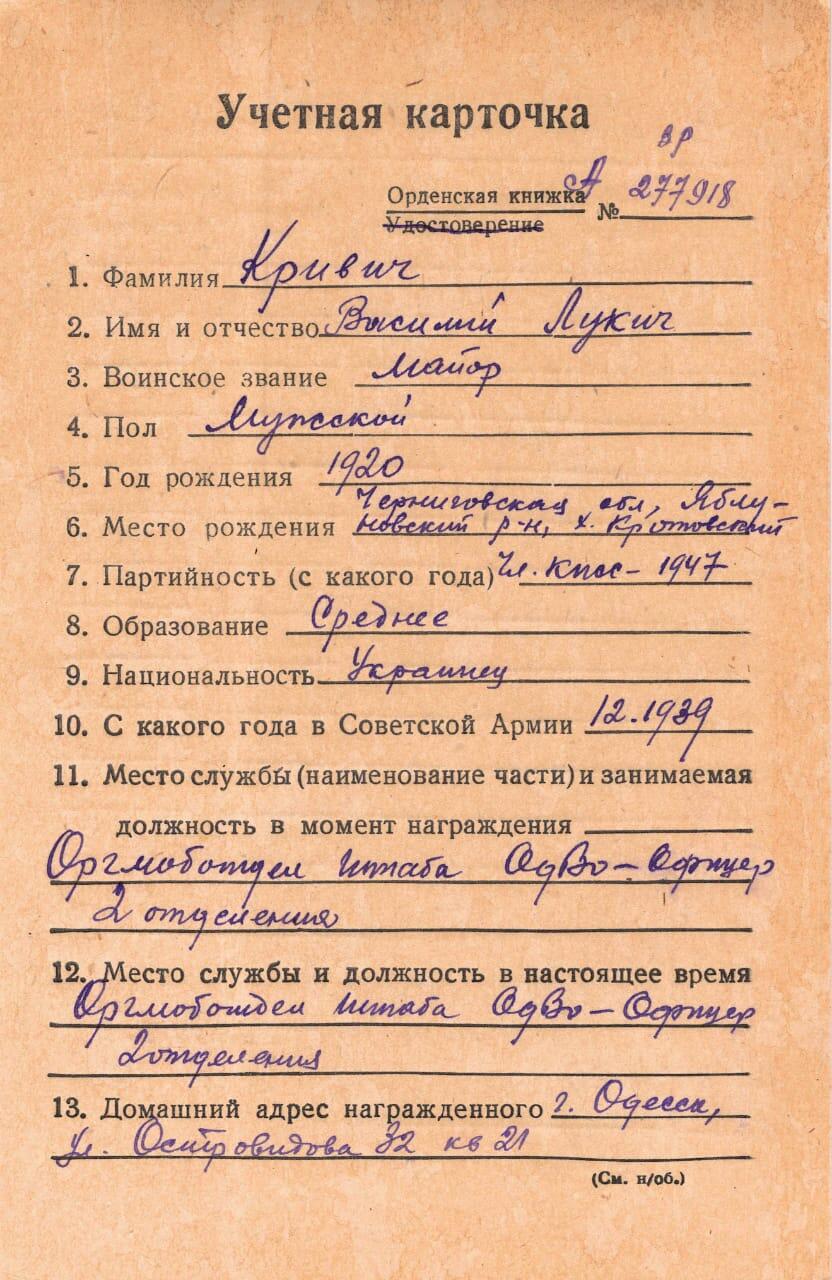 Учетная карточка
Орденская книжка А № 277918
Удостоверение
1. Фамилия Кривич
2. Имя и отчество Василий Лукич
3. Воинское звание Майор
4. Пол Мужской
5. Год рождения 1920
Черниговская обл, Яблу-
6. Место рождения новский р-н, х. Кротовский
7. Партийность (с какого года) Чл. КПСС - 1947
8. Образование Среднее
9. Национальность Украинец
10. С какого года в Советской Армии 12.1939
11. Место службы (наименование части) и занимаемая
должность в момент награждения
Оргмоботдел штаба ОдВО - Офицер
2 отделения
12. Место службы и должность в настоящее время
Оргмоботдел штаба ОдВО - Офицер
2 отделения
13. Домашний адрес награжденного г. Одесса,
ул. Островидова 32 кв 21
(См. н/об.)